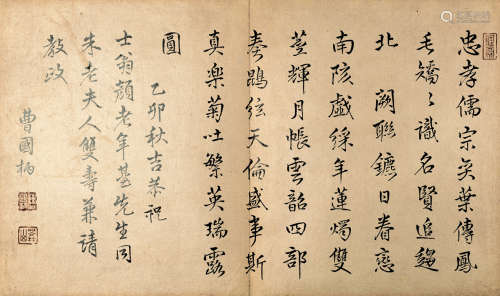 忠孝儒宗奕葉傳鳳
毛矯々識名賢追趨
北 闕聯鑣日眷戀
南陔戲綵年蓮燭雙
輝月帳雲韶四部
奏鵾弦天倫盛事斯
真樂菊吐繁英瑞露
圓
乙卯秋吉恭祝
士翁顏老年基先生同
朱老夫人雙壽兼請
教政
曹國柄